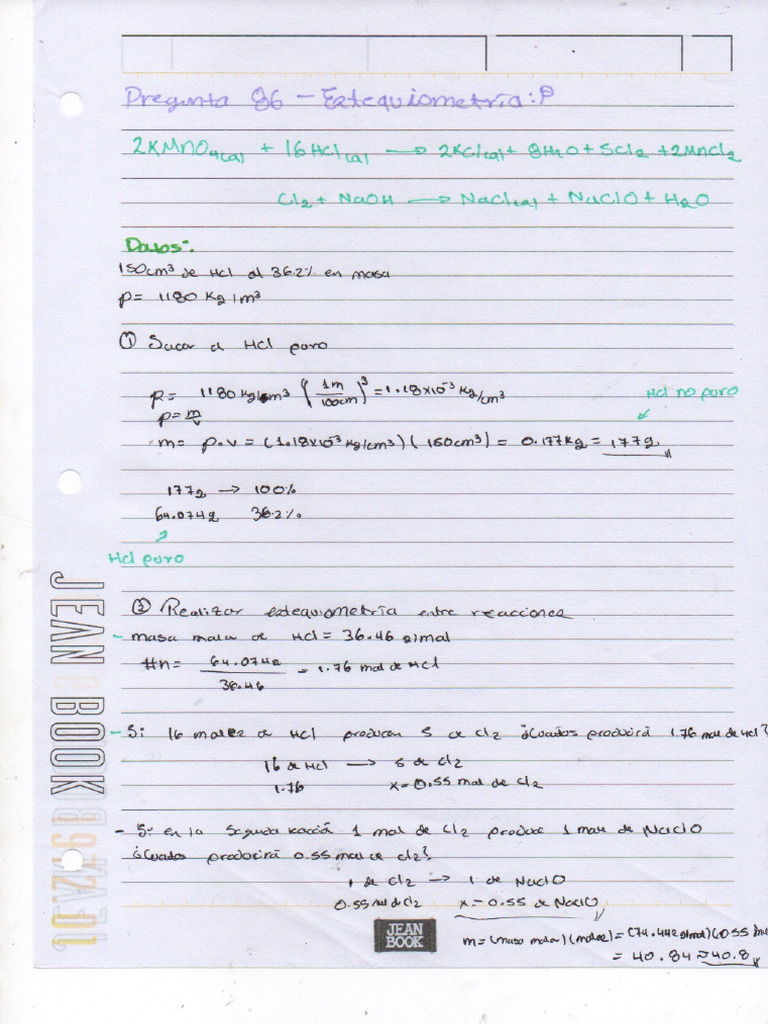 Pregunta 86 - Estequiometría :P
2KMnO4(a) + 16HCl(a) → 2KCl(a) + 8H2O + 5Cl2 + 2MnCl2
Cl2 + NaOH → NaCl(a) + NaClO + H2O
Datos:
150cm³ de HCl al 36.2% en masa
ρ= 1180 Kg/m³
① Sacar el HCl puro
ρ= 1180 Kg/m³ (1m/100cm)³ = 1.18x10⁻³ Kg/cm³
HCl no puro
ρ= m/v
m= ρ.v = (1.18x10⁻³ Kg/cm³)(150cm³) = 0.177Kg = 177g
177g → 100%
64.074g 36.2%
HCl puro
② Realizar estequiometría entre reacciones
- masa molar de HCl = 36.46 g/mol
#n= 64.074g/36.46 = 1.76 mol de HCl
- Si 16 moles de HCl producen 5 de Cl2 ¿Cuantos producirá 1.76 mol de HCl?
16 de HCl → 5 de Cl2
1.76 x= 0.55 mol de Cl2
- Si en la segunda reacció 1 mol de Cl2 produce 1 mol de NaClO
¿Cuatos producirá 0.55 mol de Cl2?
1 de Cl2 → 1 de NaClO
0.55 mol de Cl2 x= 0.55 de NaClO
m= (masa molar)(moles) = (74.442g/mol)(0.55 mol
= 40.94 ≈ 40.8
JEAN BOOK
JEAN
BOOK